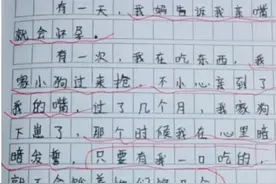 有一天，我妈告诉我亲嘴
就会怀孕。
有一次，我在吃东西，我
家小狗过来抢，不小心亲到了
我的嘴，过了几个月，我家狗
下崽了，那个时候我在心里暗
暗发誓，只要有我一口吃的，